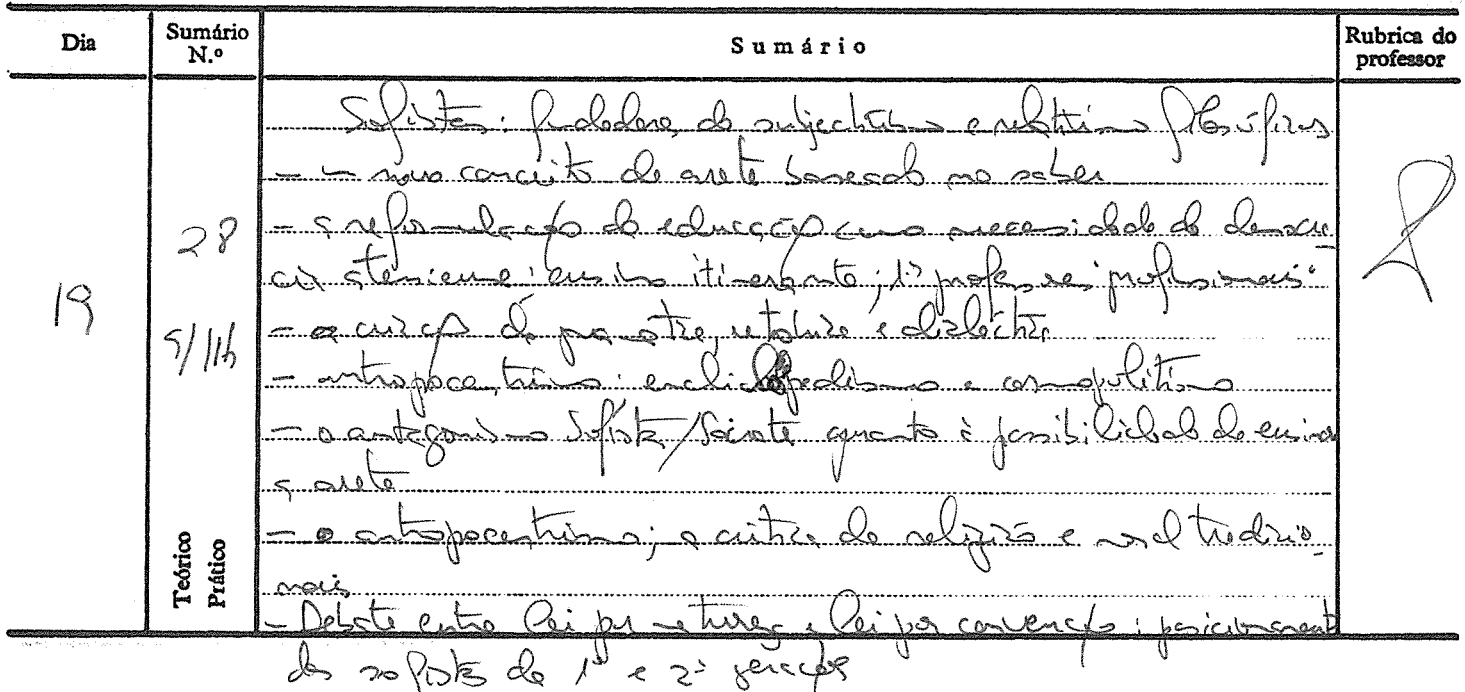 Dia Sumário N.º Sumário Rubrica do professor
Sofistas: fundadores do subjectivismo e relativismo filosóficos
- um novo conceito de arete baseado no saber
28 - a reformulação da educação como necessidade da democra-
19 cia ateniense: ensino itinerante; 1ºs professores "profissionais"
- a criação da gramática, retórica e dialéctica
- antropocentrismo: enciclopedismo e cosmopolitismo
- o antagonismo Sofistas/Sócrates quanto à possibilidade de ensinar
a arete
- o antropocentrismo; a crítica da religião e moral tradicio-
nais
Teórico Prático
- Debate entre lei por natureza e lei por convenção: posicionamento
dos sofistas da 1ª e 2ª geração